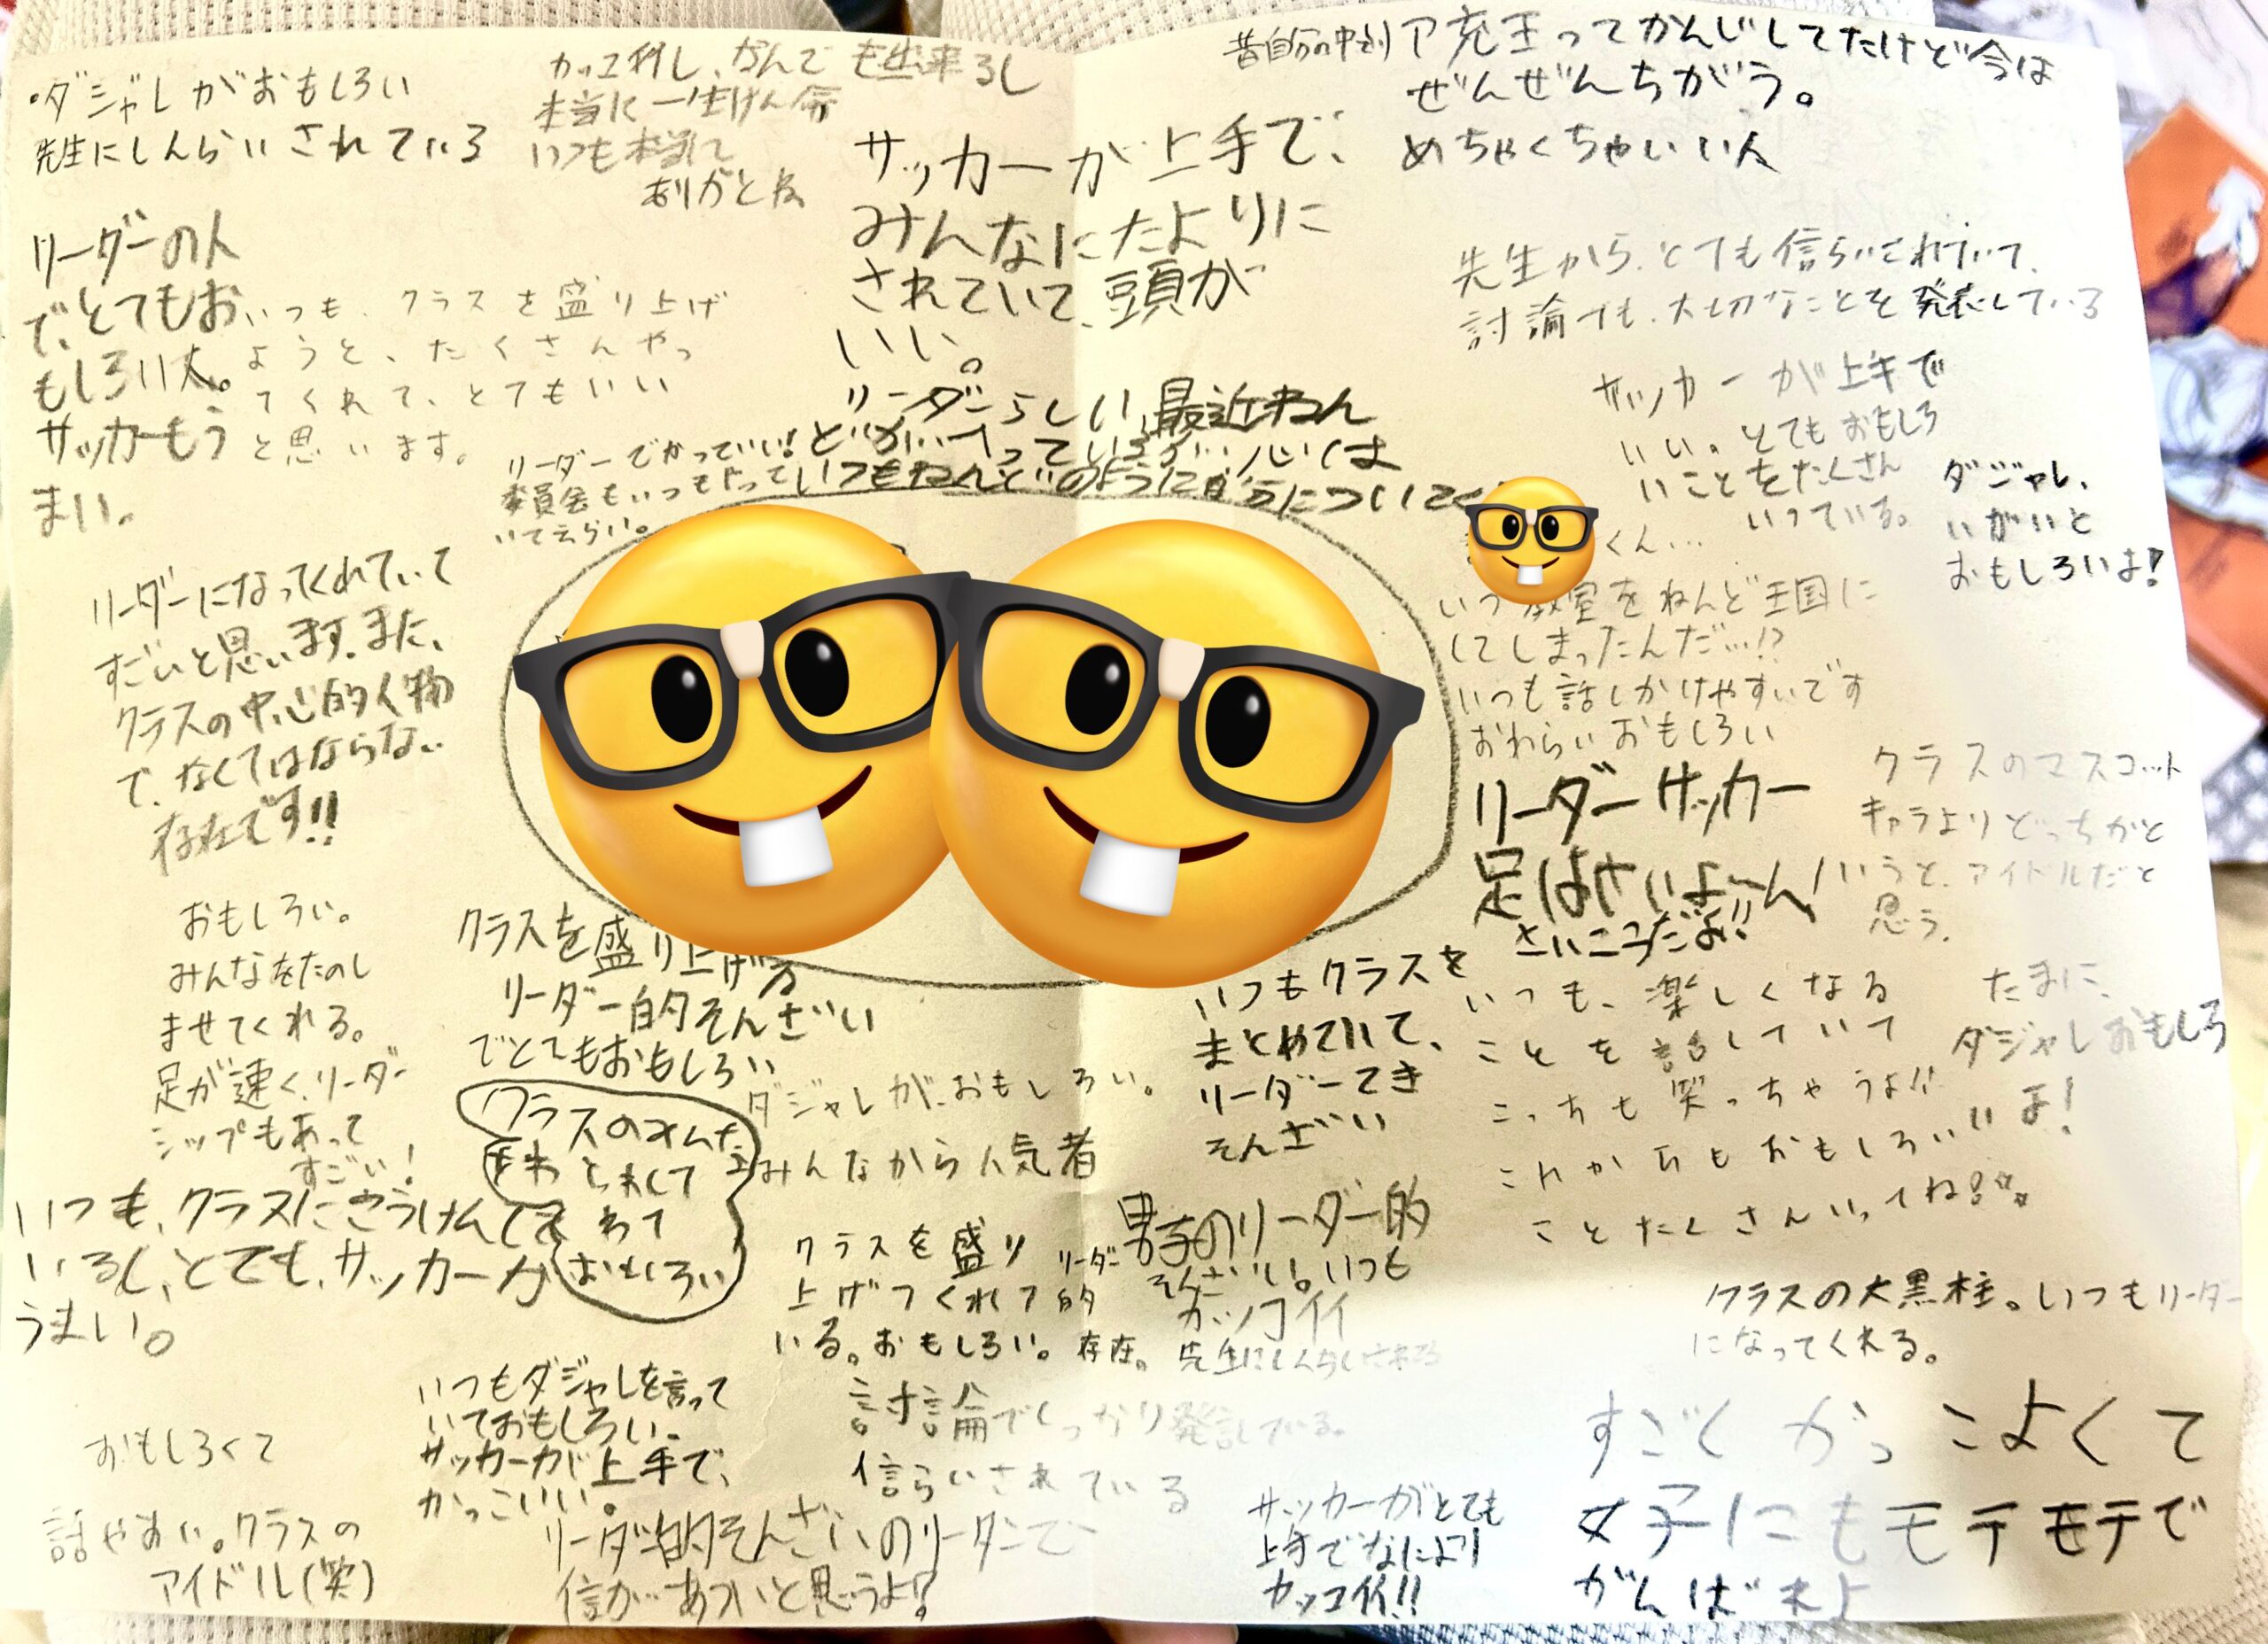 ・ダジャレがおもしろい
先生にしんらいされている
カッコ利し、なんでも出来るし
本当に一生けん命
いつも本当に
ありがとね
サッカーが上手で、
みんなにたよりに
されていて、頭が
いい。
昔自分の中でリア充王ってかんじしてたけど今は
ぜんぜんちがう。
めちゃくちゃいい人
リーダーの人
で、とてもお
もしろい人。
サッカーもう
まい。
いつも、クラスを盛り上げ
ようと、たくさんやっ
てくれて、とてもいい
と思います。
先生から、とても信らいされていて、
討論でも、大切なことを発表している
サッカーが上手で
いい。とてもおもしろ
いことをたくさん
いっている。
ダジャレ、
いがいと
おもしろいよ!
リーダーでかっこいい!
委員会もいつもやって
いてえらい。
リーダーらしい、最近ねん
どがはやっているが、心は
いつもねんどのように自分についてく
くん…
いつ教室をねんど王国に
してしまったんだ…!?
いつも話しかけやすいです
おわらいおもしろい
リーダーになってくれていて
すごいと思います。また、
クラスの中心的人物
で、なくてはならない
存在です!!
リーダーサッカー
足はやいよ〜ん!
さいこうだよ!!
クラスのマスコット
キャラよりどっちかと
いうと、アイドルだと
思う。
おもしろい。
みんなをたのし
ませてくれる。
足が速く、リーダー
シップもあって
すごい!
クラスを盛り上げ方
リーダー的そんざい
でとてもおもしろい
いつもクラスを
まとめていて、
リーダーてき
そんざい
いつも、楽しくなる
ことを話していて
こっちも笑っちゃうよ!!
これからもおもしろい
ことたくさんいってね!☆
たまに、
ダジャレおもしろ
いよ!
クラスのみんな
おもしろい
ダジャレが、おもしろい。
みんなから人気者
いつも、クラスにこうけんして
いるし、とても、サッカーが
うまい。
クラスを盛り
上げつくれて
いる。おもしろい。
リーダー
的
存在。
男子のリーダー的
そんざい。いつも
カッコイイ
先生にしんらいされてる
クラスの大黒柱。いつもリーダー
になってくれる。
いつもダジャレを言って
いておもしろい、
サッカーが上手で、
かっこいい。
討論でしっかり発言している。
信らいされている
おもしろくて
話やすい。クラスの
アイドル(笑)
リーダー的そんざいのリーダーで
信があついと思うよ!
サッカーがとても
上手でなにより
カッコイイ!!
すごくかっこよくて
女子にもモテモテで
がんばれよ